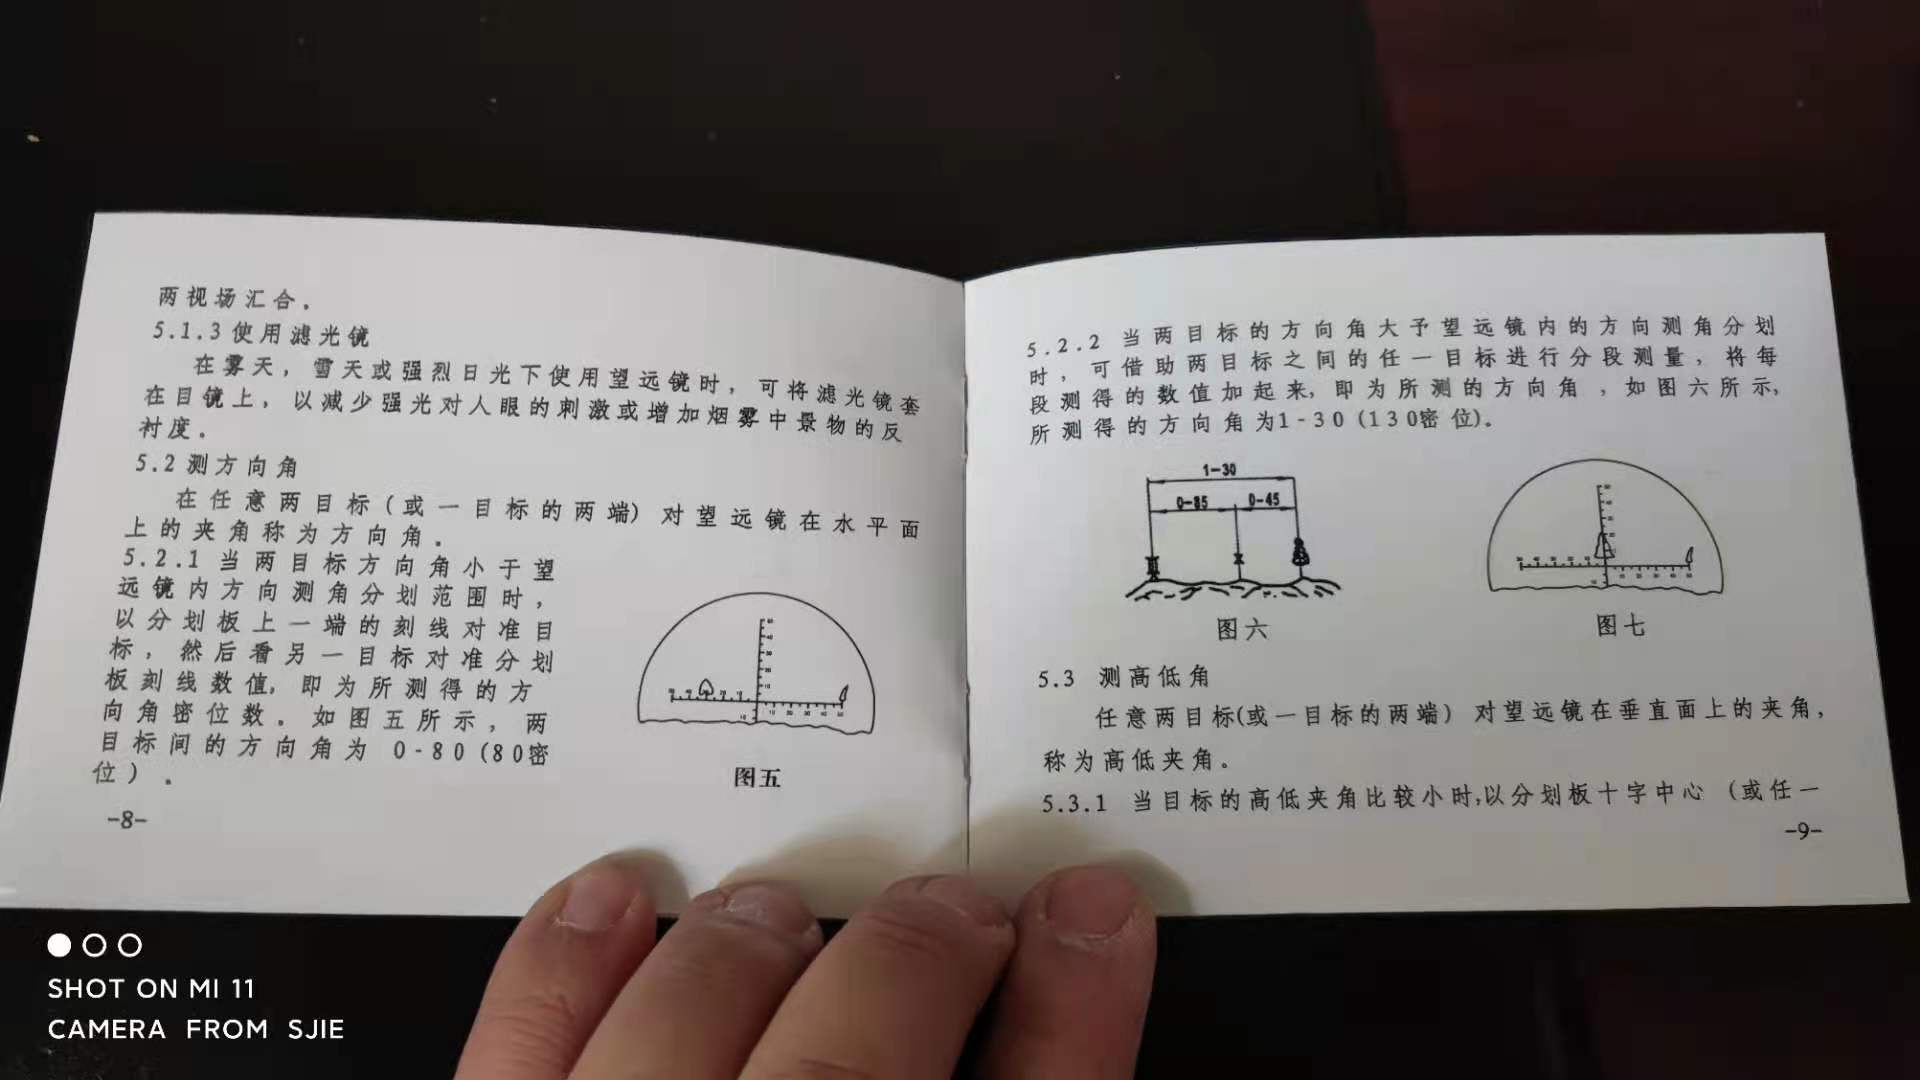 两视场汇合。
5.1.3使用滤光镜
在雾天，雪天或强烈日光下使用望远镜时，可将滤光镜套
在目镜上，以减少强光对人眼的刺激或增加烟雾中景物的反
衬度。
5.2测方向角
在任意两目标(或一目标的两端)对望远镜在水平面
上的夹角称为方向角。
5.2.1当两目标方向角小于望
远镜内方向测角分划范围时，
以分划板上一端的刻线对准目
标，然后看另一目标对准分划
板刻线数值，即为所测得的方
向角密位数。如图五所示，两
目标间的方向角为 0-80(80密
位)。
图五
-8-
5.2.2 当两目标的方向角大予望远镜内的方向测角分划
时，可借助两目标之间的任一目标进行分段测量，将每
段测得的数值加起来，即为所测的方向角，如图六所示，
所测得的方向角为1-30(130密位)。
1-30
0-85 0-45
图六
图七
5.3 测高低角
任意两目标(或一目标的两端)对望远镜在垂直面上的夹角，
称为高低夹角。
5.3.1 当目标的高低夹角比较小时,以分划板十字中心（或任一
-9-
SHOT ON MI 11
CAMERA FROM SJIE